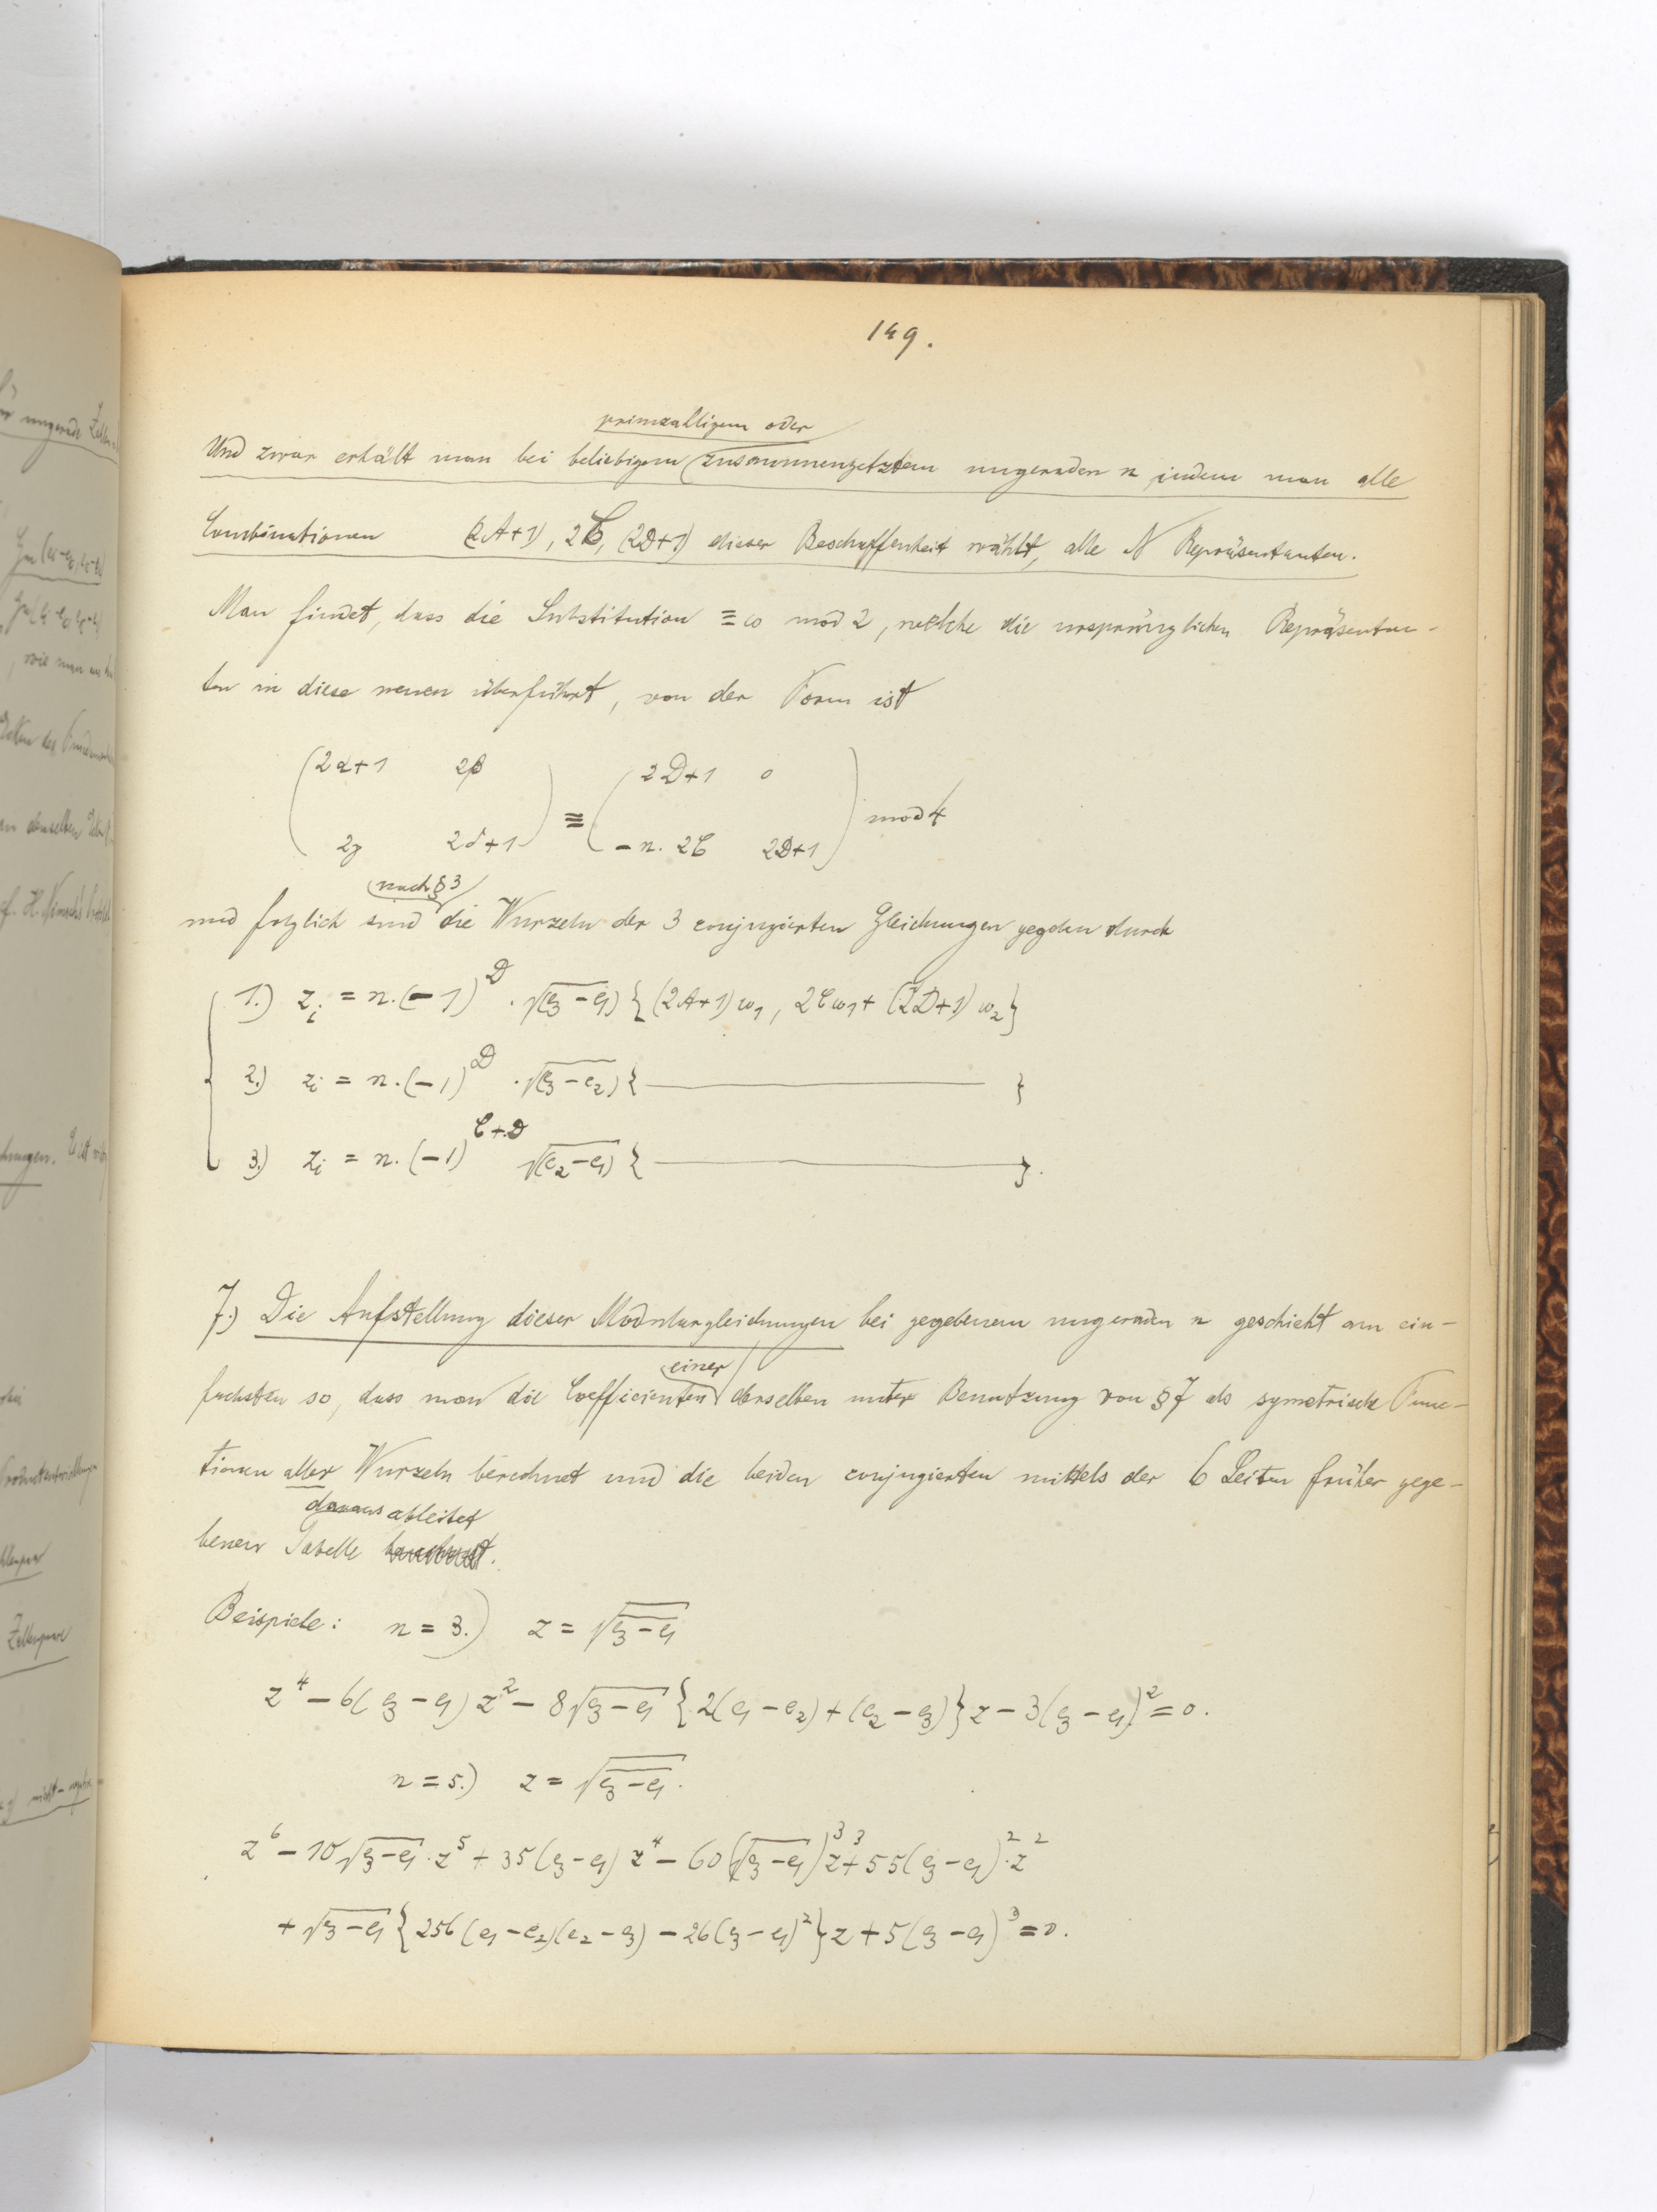 149.
primzahligem oder
Und zwar erhält man bei beliebigem zusammengesetztem ungeraden n, indem man alle
Combinationen (2A+1), 2C, (2D+1) dieser Beschaffenheit wählt, alle N Repräsentanten.
Man findet, dass die Substitution ≡ ω mod 2, welche die ursprünglichen Repräsentan-
ten in diese neuen überführt, von der Form ist
(2α+1 2β) (2D+1 0)
≡ mod 4
(2γ 2δ+1) (−n. 2C 2D+1)
nach §3
und folglich sind die Wurzeln der 3 conjugierten Gleichungen gegeben durch
1.) z_i = n.(−1)^D . √(e₃−e₁) {(2A+1)ω₁, 2Cω₁+(2D+1)ω₂}
2.) z_i = n.(−1)^D . √(e₃−e₂) {———}
3.) z_i = n.(−1)^{C+D} √(e₂−e₁) {———}.
7.) Die Aufstellung dieser Modulargleichungen bei gegebenem ungeraden n geschieht am ein-
einer
fachsten so, dass man die Coefficienten derselben unter Benutzung von §7 als symetrische Func-
tionen aller Wurzeln berechnet und die beiden conjugierten mittels der 6 Seiten früher gege-
daraus ableitet
benen Tabelle berechnet.
Beispiele: n = 3.) z = √(e₃−e₁)
z⁴ − 6(e₃−e₁) z² − 8√(e₃−e₁) {2(e₁−e₂)+(e₂−e₃)} z − 3(e₃−e₁)² = 0.
n = 5.) z = √(e₃−e₁).
z⁶ − 10√(e₃−e₁) . z⁵ + 35(e₃−e₁) z⁴ − 60(√(e₃−e₁))³ z³ + 55(e₃−e₁)² . z²
+ √(e₃−e₁) {256(e₁−e₂)(e₂−e₃) − 26(e₃−e₁)²} z + 5(e₃−e₁)³ = 0.